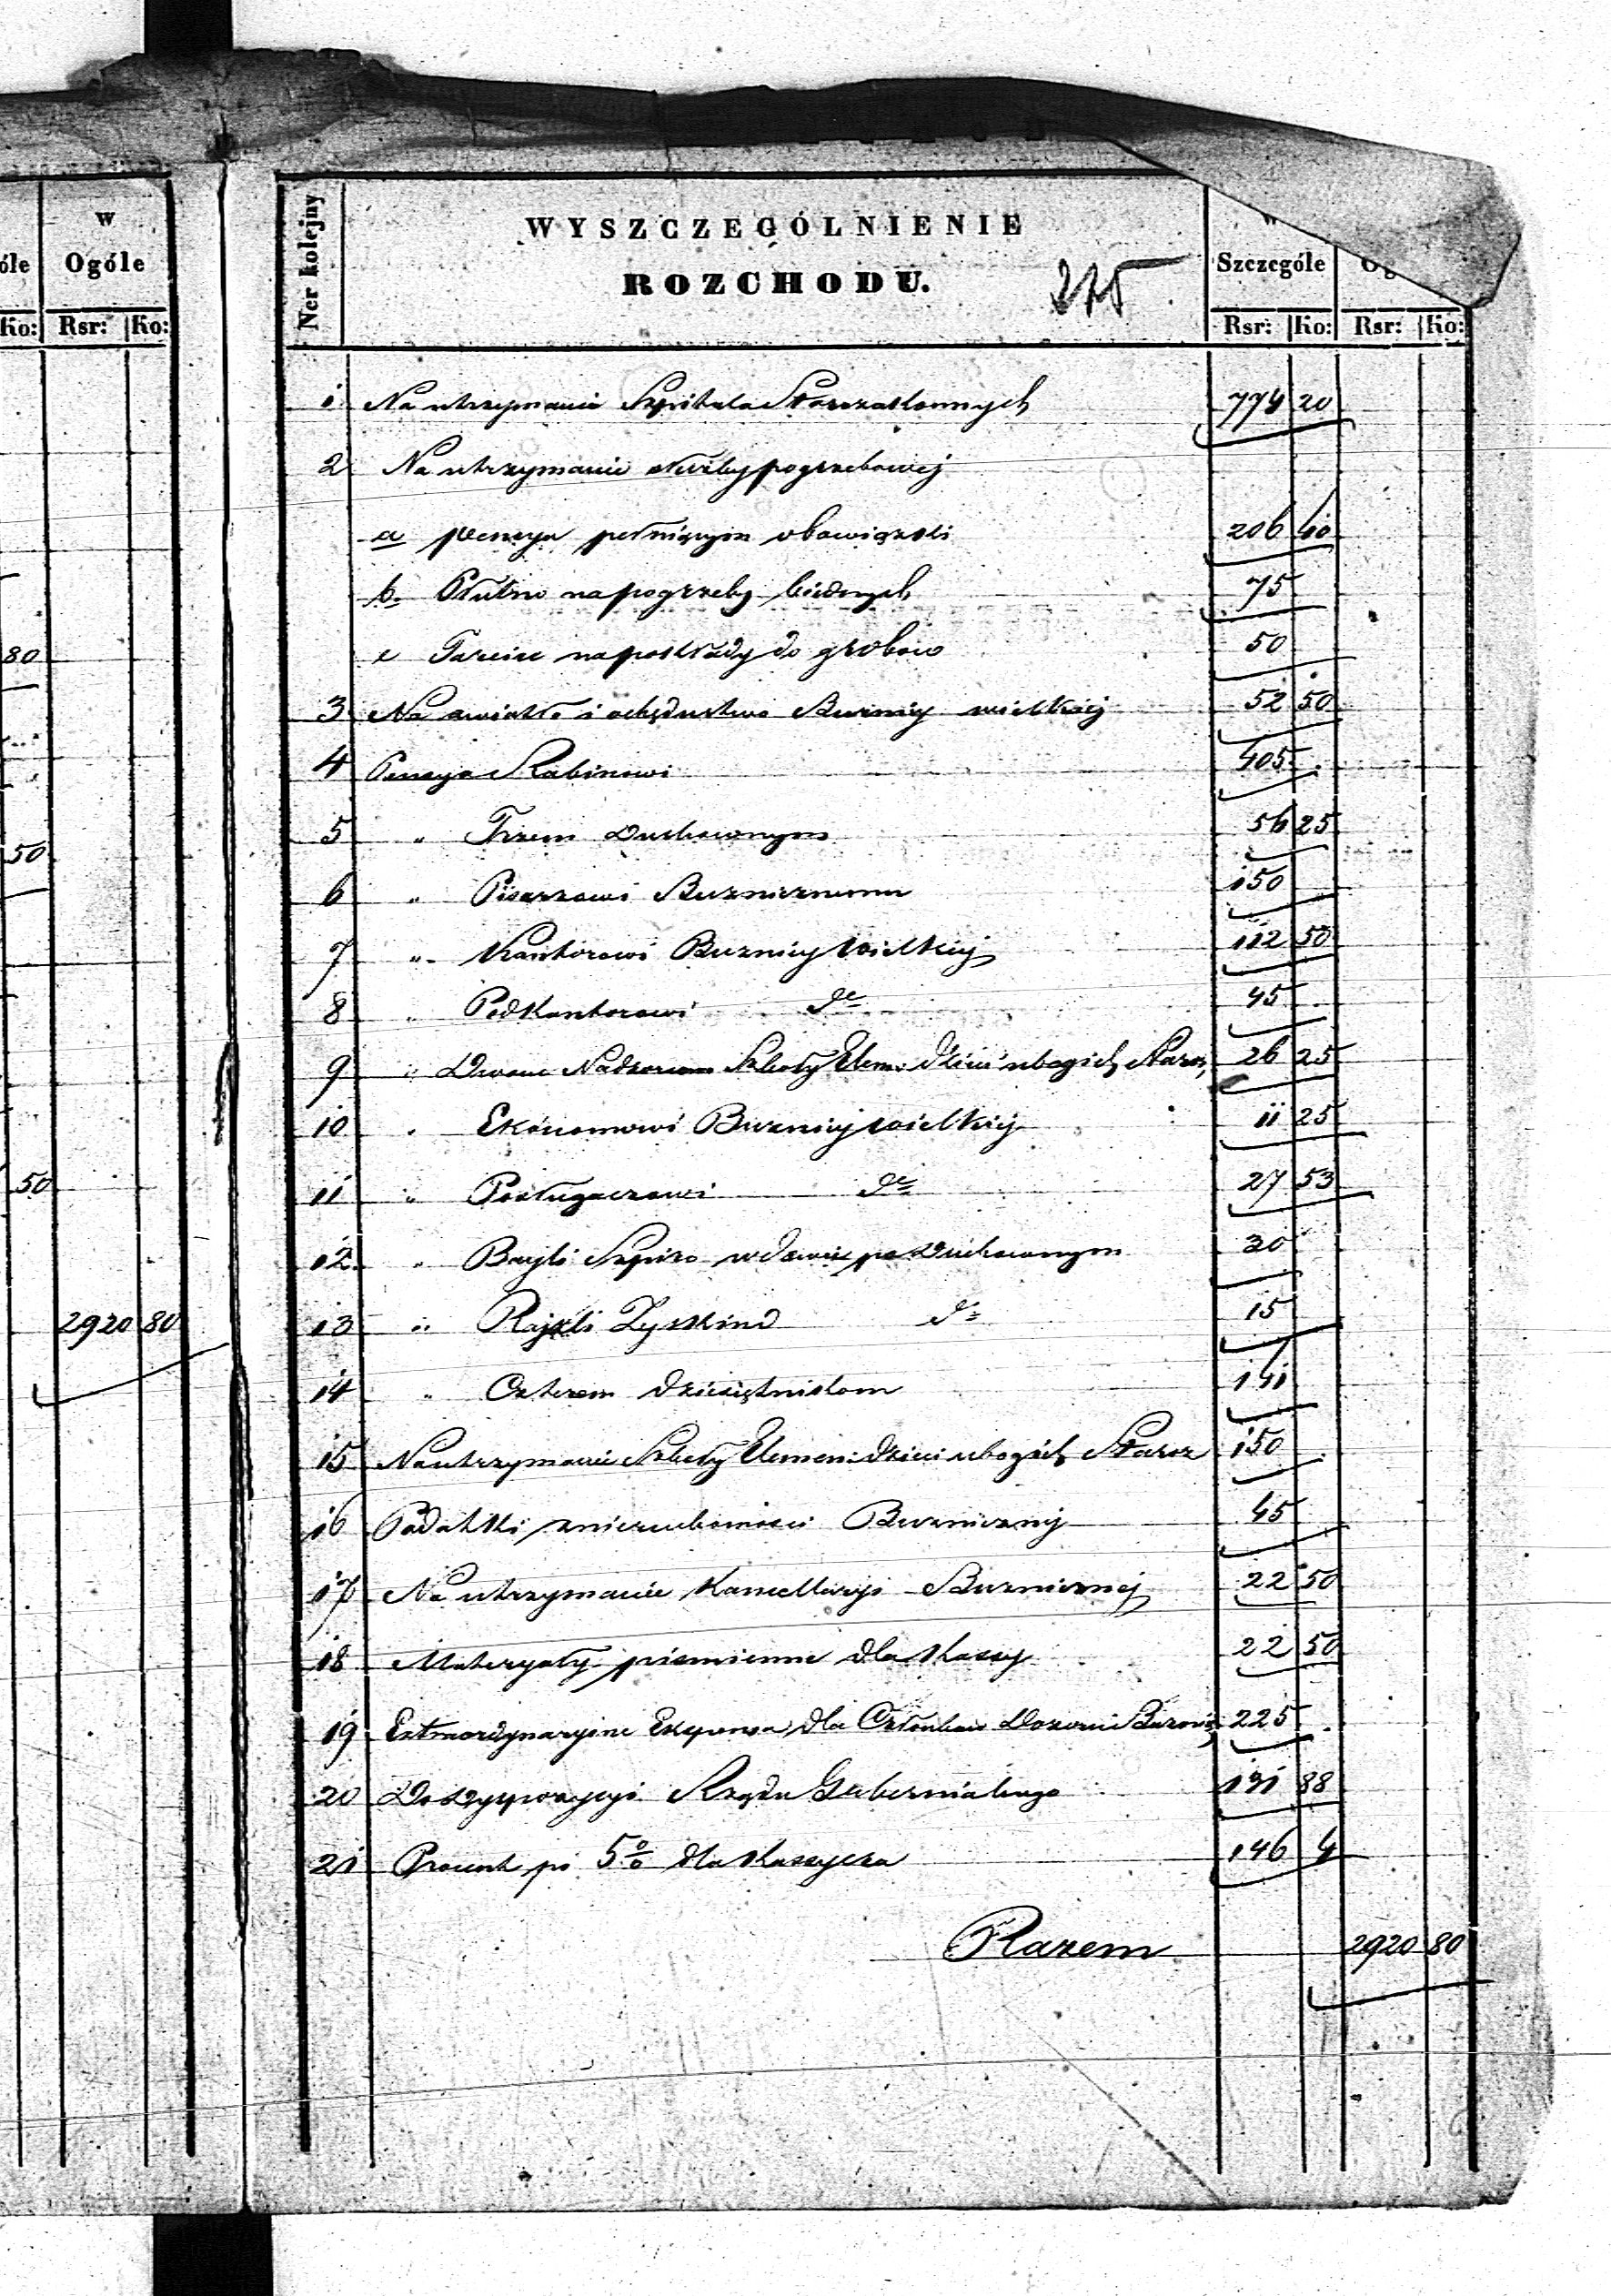 óle
w
Ogóle
Ko: Rsr: Ko:
80
50
50
2920 80
Ner kolejny
WYSZCZEGÓLNIENIE
ROZCHODU.
275
w
Szczególe
Og
Rsr: Ko: Rsr: Ko:
1 Na utrzymanie Szpitala Starozakonnych 774 20
2 Na utrzymanie służby pogrzebowej
a pensya pełniącym obowiązki 206 40
b. Płutno na pogrzeby biednych 75
c Tarcice na pokłady do grobów 50
3 Na światło i ochędustwo Buznicy wielkiej 52 50
4 Pensya Rabinowi 405
5 " Trzem Duchownym 56 25
6 " Pisarzowi Buznicznemu 150
7 " Kantorowi Buznicy wielkiej 112 50
8 " Podkantorowi do 45
9 " Dwom Nadzorcom Szkoły Elem: dzieci ubogich Staroz, 26 25
10 " Ekonomowi Buznicy wielkiej 11 25
11 " Posługaczowi do 27 53
12 " Bayli Szpiro wdowie po Duchownym 30
13 " Rajzli Zyskind do 15
14 " Czterem dziesiętnikom 141
15 Na utrzymanie Szkoły Elemen: dzieci ubogich Staroz 150
16 Podatki z nieruchomości Buznicznej 45
17 Na utrzymanie Kancellaryi Buznicznej 22 50
18 Materyały piśmienne dla Kassy 22 50
19 Extraordynaryjne Expensa dla Członków Dozoru Buznicz, 225
20 Do dyspozycyi Rządu Gubernialnego 131 88
21 Procent po 5% dla Kassyera 146 4
Razem 2920 80